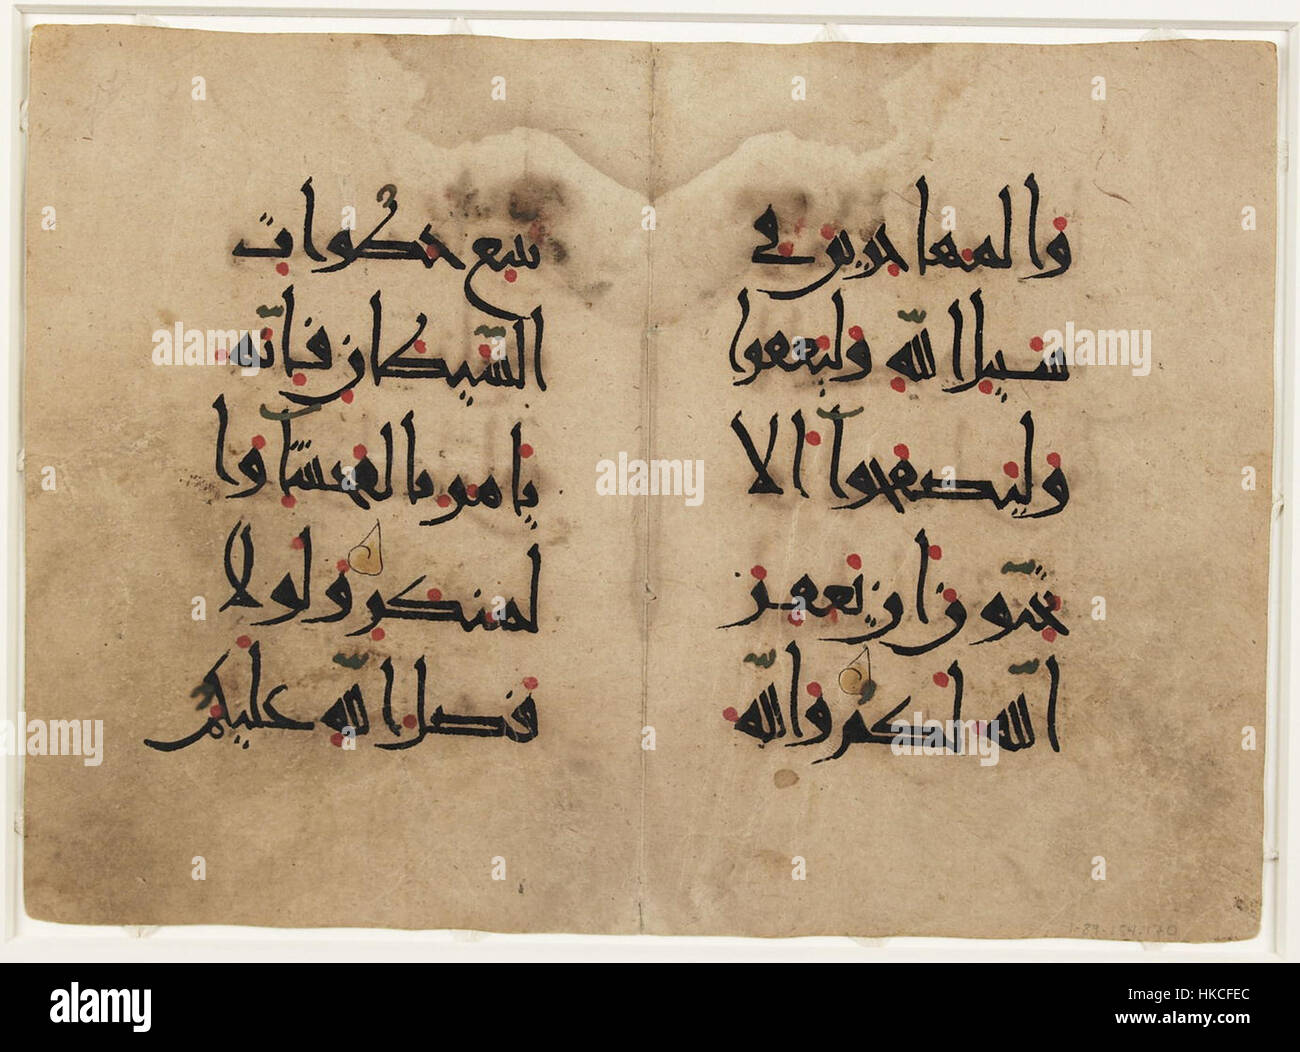 والمهاجرين في
سبيل الله وليعفوا
وليصفحوا الا
تحبون ان يغفر
الله لكم والله
يتبع خطوات
الشيطان فانه
يامر بالفحشا وا
لمنكر ولولا
فضل الله عليكم
alamy
alamy
alamy
alamy
alamy
alamy
Image ID: HKCFEC
www.alamy.com